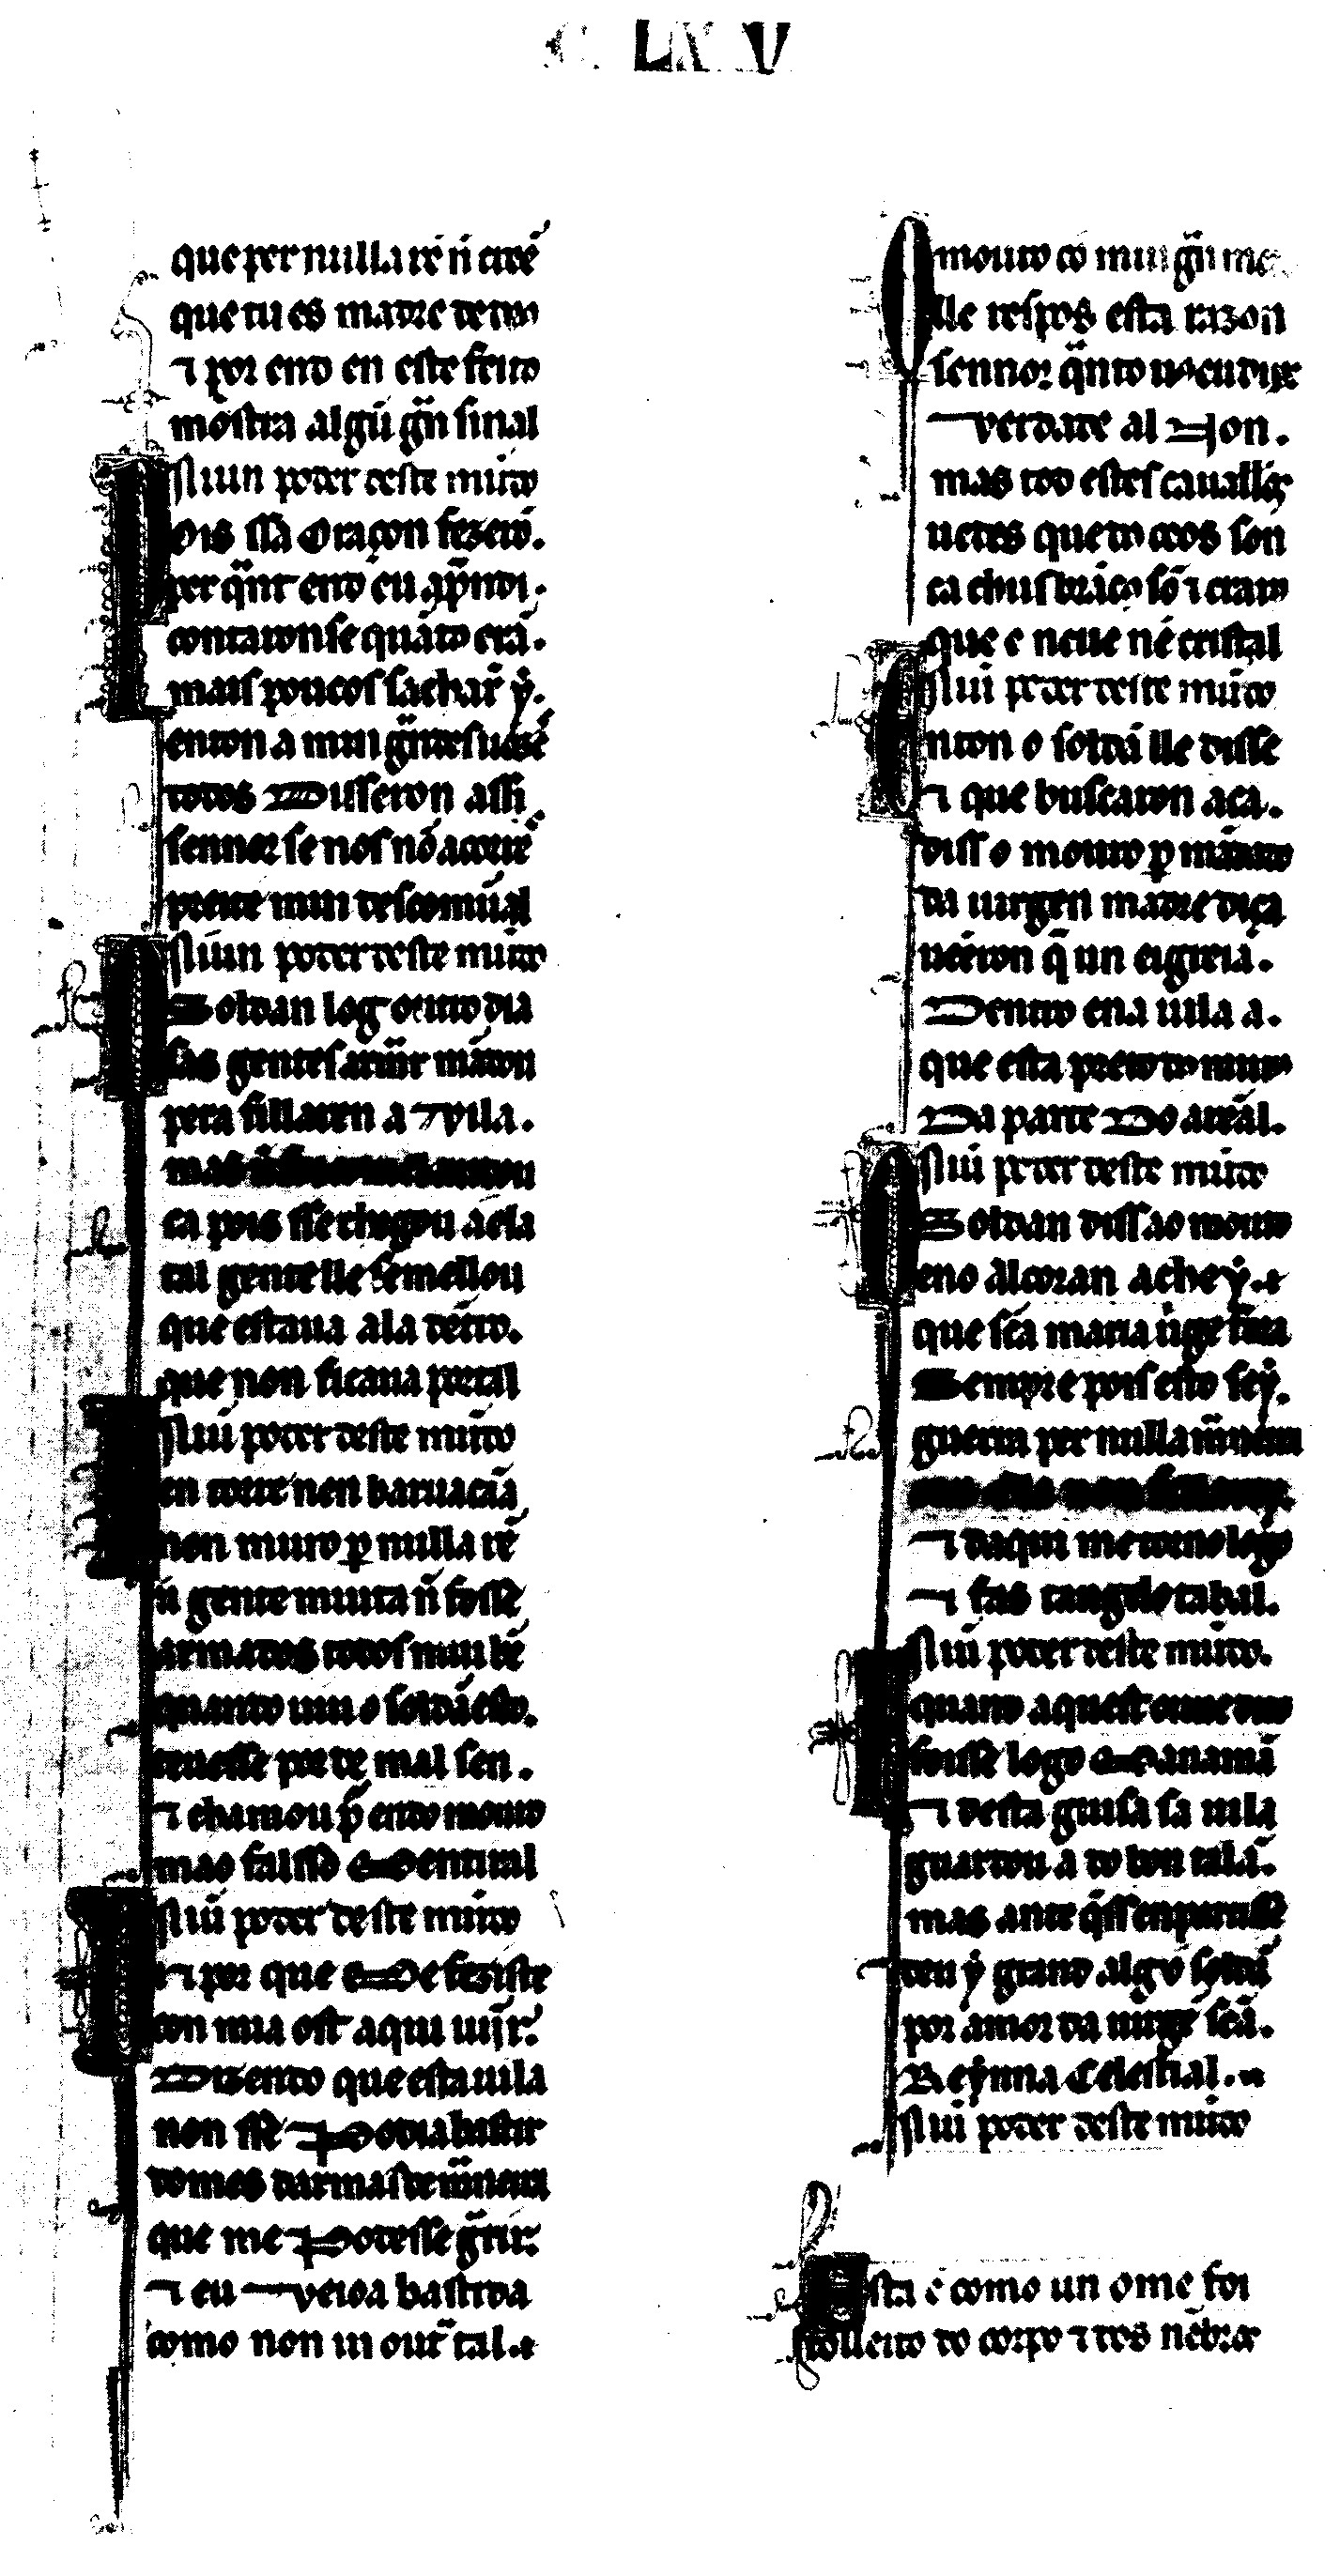 C LXV
que per nulla rẽ ñ creẽ
que tu es madre de deus
⁊ por end en este feito
mostra algũ gñ sinal
Niun poder deste mũdo
Pois ssa oraçon fezerõ.
per qñt end eu aprendi.
contaronse quãtos erã.
mais poucos sacharõ ẏ.
enton a mui gñ
todos Disseron assi
sennor se nos nõ acorre
prende mui descomũal
Niun poder deste mũdo
O Soldan log outro dia
sas gentes armar mãdou
pera fillaren a vila.
mas
ca pois sse chegou a ela
tal gente lle semellou
que estaua ala dentro.
que non ficaua portal
Niũ poder deste mũdo
en torre nen baruacãa
nen muro p nulla rẽ
ũ gente muita ñ fosse
armados todos mui bẽ
quando uiu o soldã esto.
teuesse por de mal sen.
⁊ chamou p̃ endo mouro
mao falsso Dentural
Niũ poder deste mũdo
⁊ por que Me feziste
con mia ost aqui uĩjr.
Dizendo que esta uila
non sse Podia bastir
domes darmas de
que me Podesse gr̃ir.
⁊ eu vejoa bastida
como non ui outr tal.
O mouro cõ mui gñ me
lle respos esta razon
sennor qñto uos eu dixe
verdade al Non.
mas todestes caualleiros
uedes que todos son
ca chus brãcos sõ ⁊ craros
que e neue nẽ cristal
Niũ poder deste mũdo
Enton o soldã lle disse
⁊ que buscaron aca.
diss o mouro p mãdado
da uirgen madre diça
uẽeron q̃ un eigreia.
Dentro ena uila a.
que esta preto do muro
Da parte Do areal.
Niũ poder deste mũdo
O Soldan diss ao mouro
eno Alcoran achey.
que sc̃a maria
Sempre pois esto sey.
guerra per nulla
con ela non fillarey.
⁊ daqui me torno logo
⁊ fas tangelo tabal.
Niũ poder deste mũdo.
quand aquest ouue dito
foisse logo
⁊ desta guisa sa uila
guardou a do bon talã.
mas ante
deu ẏ grand algo
por amor da uirgẽ sc̃a.
Reẏnna Celestial.
Niũ poder deste mũdo
Esta é como un ome foi
tolleito do corpo ⁊ dos nẽbros